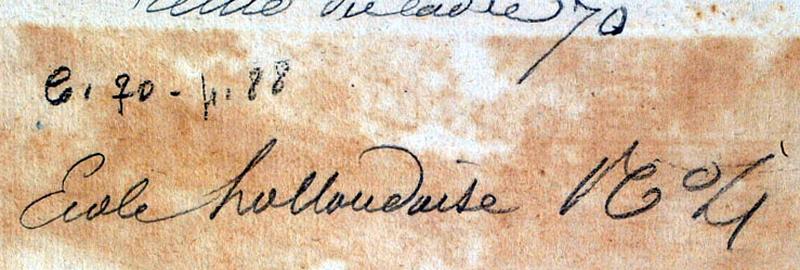 70
C. 70 - 4. 88
Ecole hollondaise N° 4